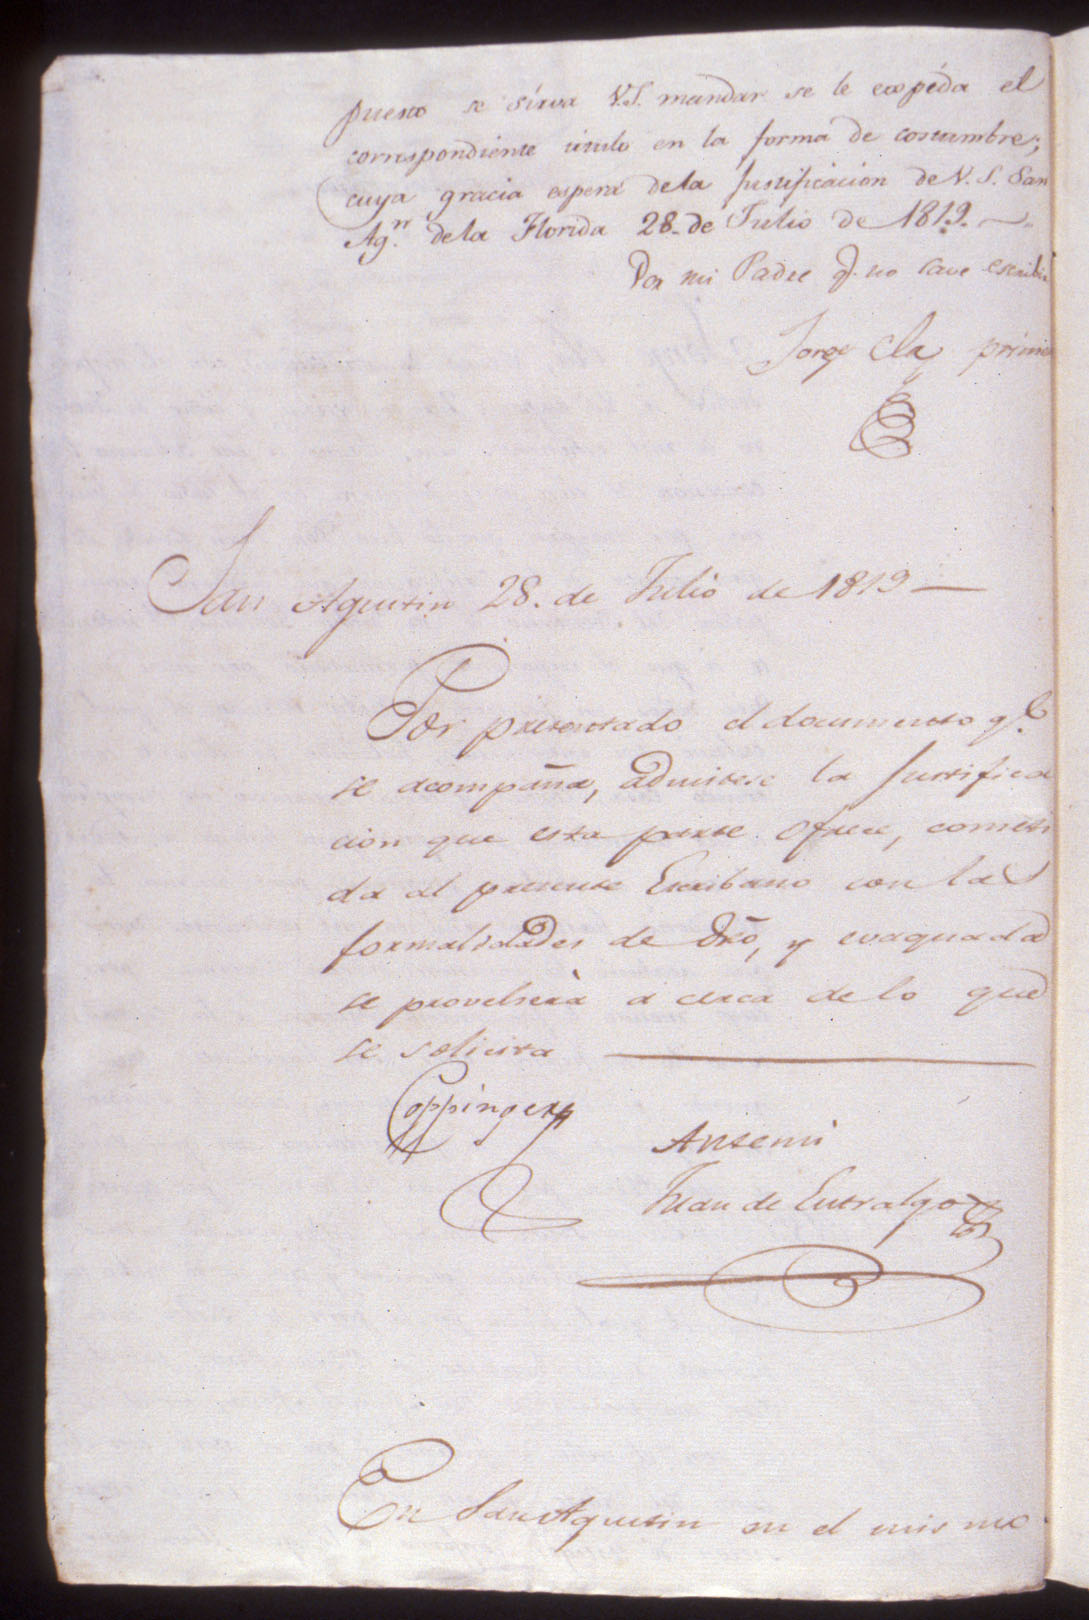 puesto se sirva V.S. mandar se le expéda el
correspondiente titulo en la forma de costumbre;
cuya gracia espera dela Justificacion de V. S. San
Ag.n dela Florida 28. de Julio de 1819.
Por mi Padre q.e no save escribir
Jorge Cla primer
San Agustin 28. de Julio de 1819
Por presentado el documento q.e
se acompaña, admitese la Justifica
cion que esta parte ofrece, cometi
da al presente Escribano con las
formalidades de dro, y evaquada
se provehera a cerca de lo que
se solicita
Coppinger
Antemi
Juan de Entralgo
En San Agustin en el mismo